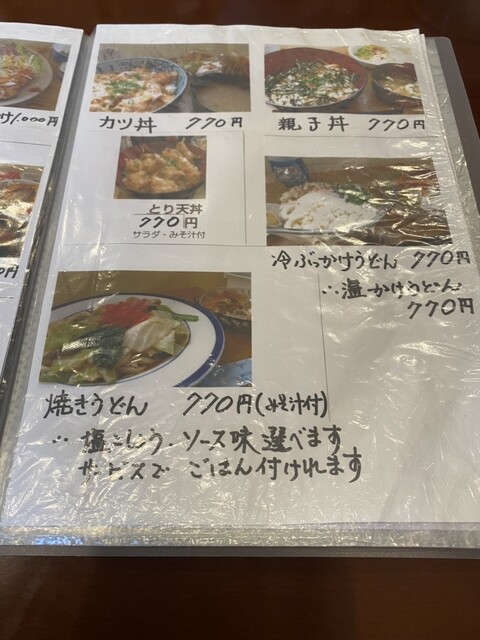 け1.000円
0円
カツ丼 770円
親子丼 770円
とり天丼
770円
サラダ・みそ汁付
冷ぶっかけうどん 770円
∴温かけうどん
770円
焼きうどん 770円(みそ汁付)
∴塩こしょう・ソース味選べます
サービスで ごはん付けれます